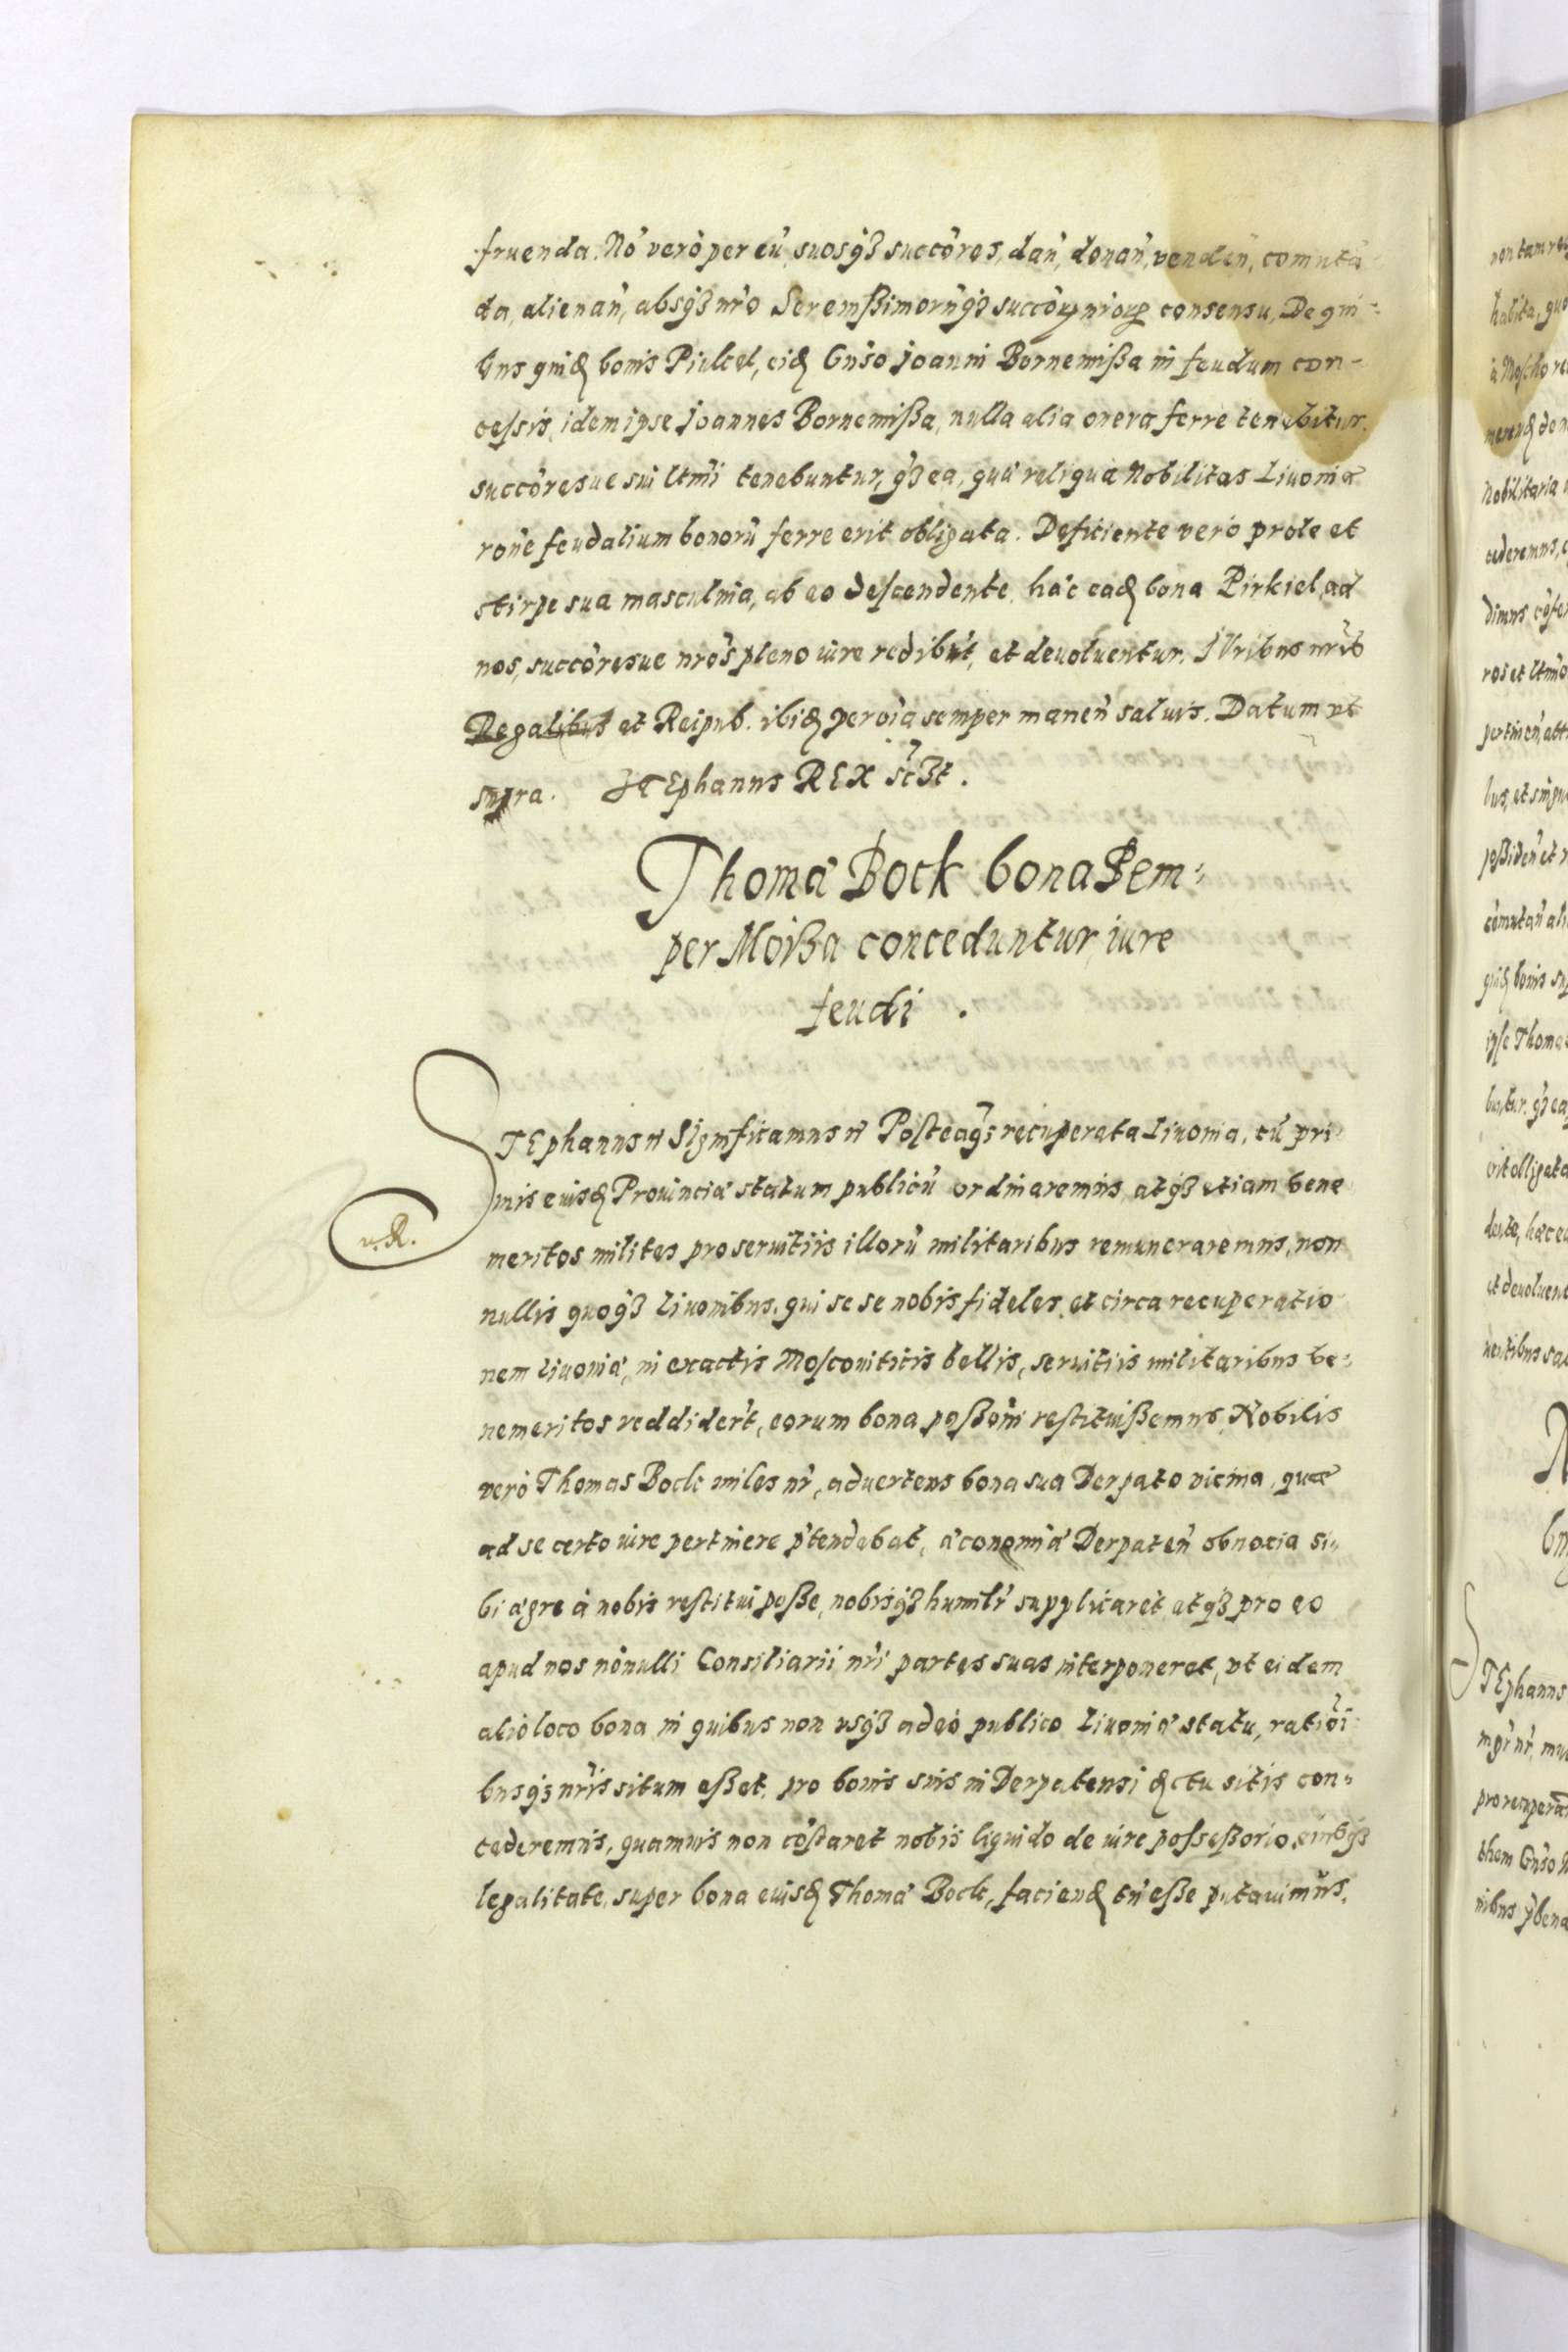 fruenda. Nō verò per eū, suosq3 succōres, dañ, donañ, vendeñ, comutā
da, alienañ, absq3 nr̃o Serenßimorūq3 succōrū nrōrū consensu, De qui-
bus quidē bonis Piulcel, eidē Gnŝo Joanni Bornemißa in feudum con-
cessis, idem ipse Joannes Bornemißa, nulla alia onera ferre tenebitur.
succōresue sui ltm̄i tenebuntur, q3 ea, quȧ reliqua Nobilitas Liuoniæ
rōne feudalium bonorū ferre erit obligata. Deficiente verò prole et
stirpe sua masculina, ab eo descendente. hac eadē bona Pirkiel, ad
nos, succōresue nrōs pleno iure redibūt, et deuoluentur. IUribus nr̄is
Regalibus et Reipub. ibidē per oīa semper maneñ saluis. Datum vt
supra. STEphanus REX sc̄3t.
Thomæ Bock bona Sem=
per Moißa conceduntur iure
feudi.
STEphanus Significamus Posteaq3 recuperata Liuonia, cū pri
mis eiusdē Prouinciæ statum publicū ordinaremus, atq3 etiam bene
v. R.
meritos milites pro seruitiis illorū militaribus remuneraremus, non
nullis quoq3 Liuonibus. qui se se nobis fideles, et circa recuperatio
nem Liuoniæ, in exactis Moscouiticis bellis, seruitiis militaribus be=
nemeritos reddider̄t, eorum bona poßōni restituißemus. Nobilis
verò Thomas Bock miles nr̄, aduertens bona sua Derpato vicina, quæ
ad se certo iure pertinere p̄tendebat, æconomiæ Derpateñ obnoxia si=
bi ægre à nobis restitui poße, nobisq3 humilr̄ supplicaret atq3 pro eo
apud nos nōnulli Consiliarii nr̄i partes suas interponeret, vt eidem
alio loco bona, in quibus non vsq3 adeò publico Liuoniæ statu, ratiōi=
busq3 nr̄is situm eßet. pro bonis suis in Derpatensi dctu sitis con=
cederemus, quamuis non cōstaret nobis liquido de iure posseßorio
legalitate, super bona eiusdē Thomæ Bock, faciendē tñ eße putauimus.